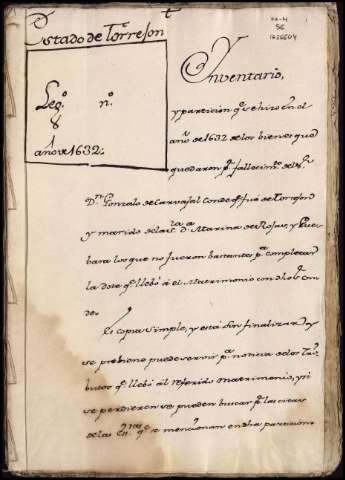 Estado de Torrejon
Leg.º n.º
8
1
año de 1632.
56
Ynventario,
y particion q.e se hizo en el
año de 1632 de los bienes que
quedaron p.r fallecim.to del S.r
D.n Gonzalo de Carvajal Conde q.e fue de Torrejon
y marido de la S.ra D.a Marina de Rojas, y Gue-
bara los que no fueron bastantes p.a completar
la dote q.e llebó á el Matrimonio con dho S.r Con-
de.
Es copia simple, y está sin finalizar, y
se previene puede servir p.a noticia de los
q.e llebó al referido Matrimonio, y si
se perdieren se pueden buscar p.r las citas
de las q.e se mencionan en dha particion